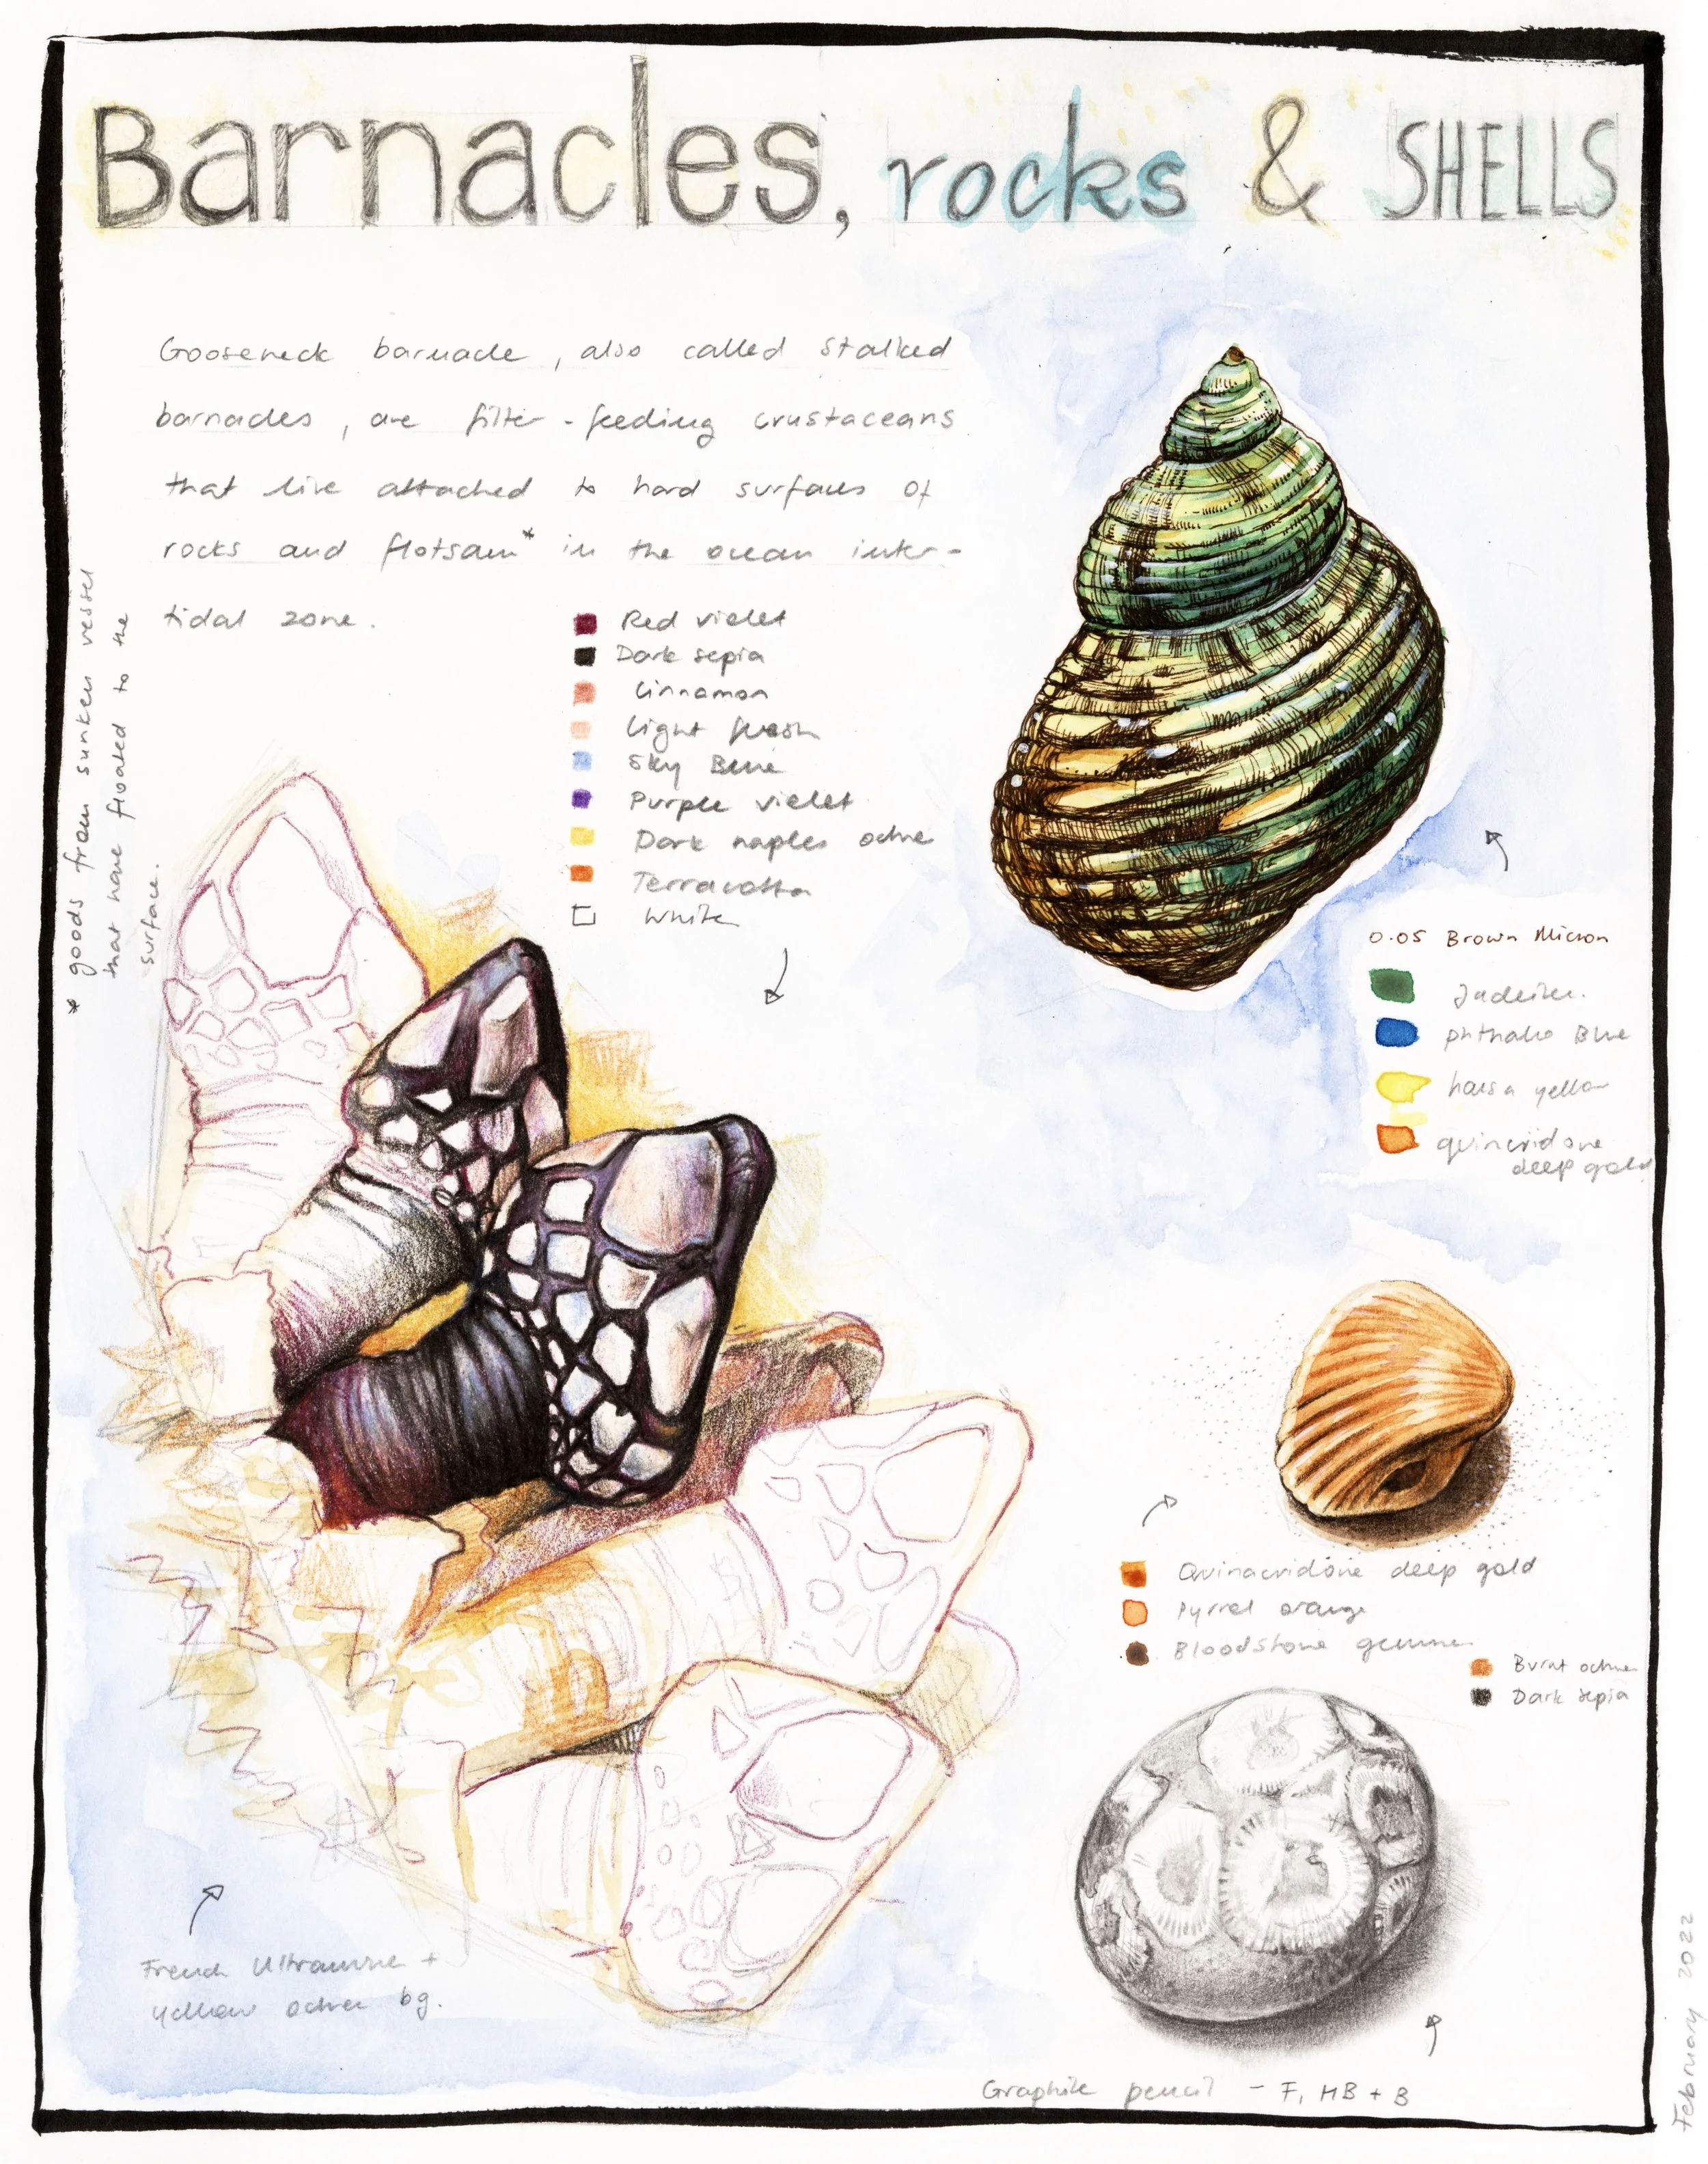 Barnacles, rocks & SHELLS
Gooseneck barnacle, also called stalked
barnacles, are filter-feeding crustaceans
that live attached to hard surfaces of
rocks and flotsam* in the ocean inter-
tidal zone.
* goods from sunken vessel
that have floated to the
surface.
Red violet
Dark sepia
Cinnamon
Light flesh
Sky Blue
Purple violet
Dark naples ochre
Terracotta
White
0.05 Brown Micron
Jadeite.
phthalo Blue
hansa yellow
quinacridone
deep gold
Quinacridone deep gold
Pyrrol orange
Bloodstone genuine
Burnt ochre
Dark sepia
French Ultramarine +
yellow ochre bg.
Graphite pencil - F, HB + B
February 2022